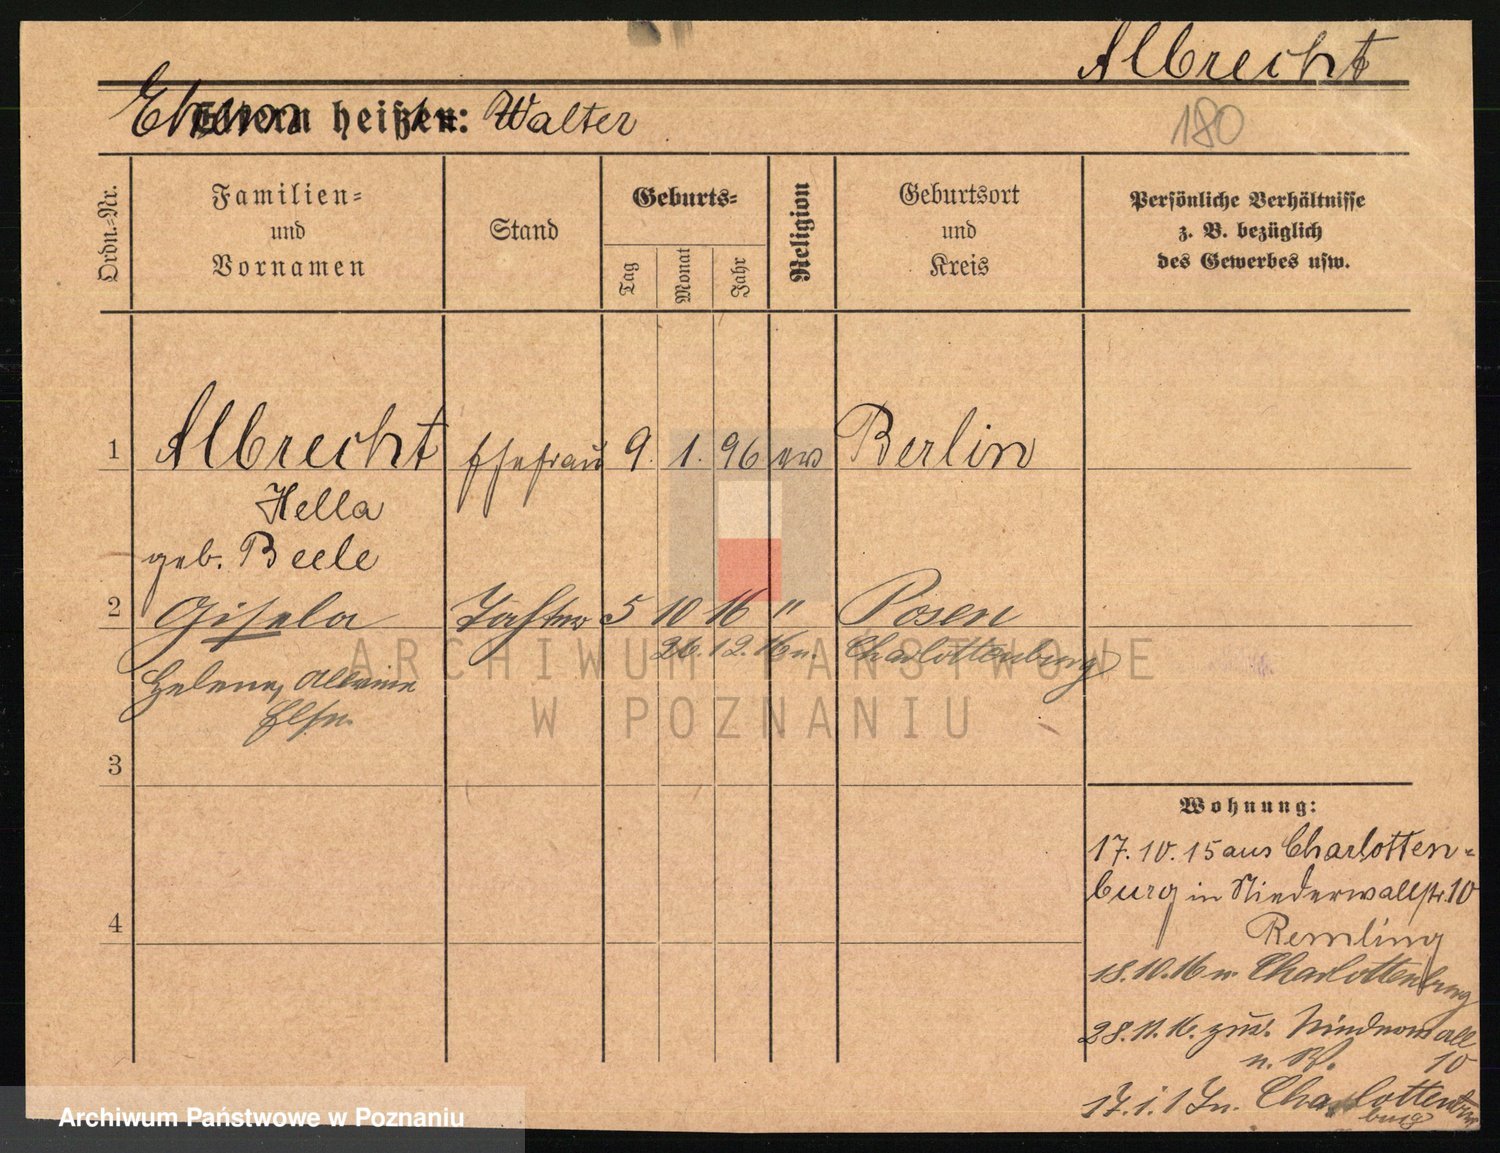 Albrecht
Eltern heißen: Walter
180
Ordn.-Nr.
Familien-
und
Vornamen
Stand
Geburts-
Tag
Monat
Jahr
Religion
Geburtsort
und
Kreis
Persönliche Verhältnisse
z. B. bezüglich
des Gewerbes usw.
1 Albrecht Ehefrau 9. 1. 96 ev Berlin
Hella
geb. Beele
2 Gisela Tochter 5 10 16 " Posen
26.12.16 n. Charlottenburg
Helene,
Else.
3
4
Wohnung:
17.10.15 aus Charlotten-
burg in Niederwallstr. 10
Remling
18.10.16 n. Charlottenburg
28.11.16. zur. Niederwall
10
17.1.17 n. Charlottenburg
burg
ARCHIWUM PAŃSTWOWE
W POZNANIU
Archiwum Państwowe w Poznaniu